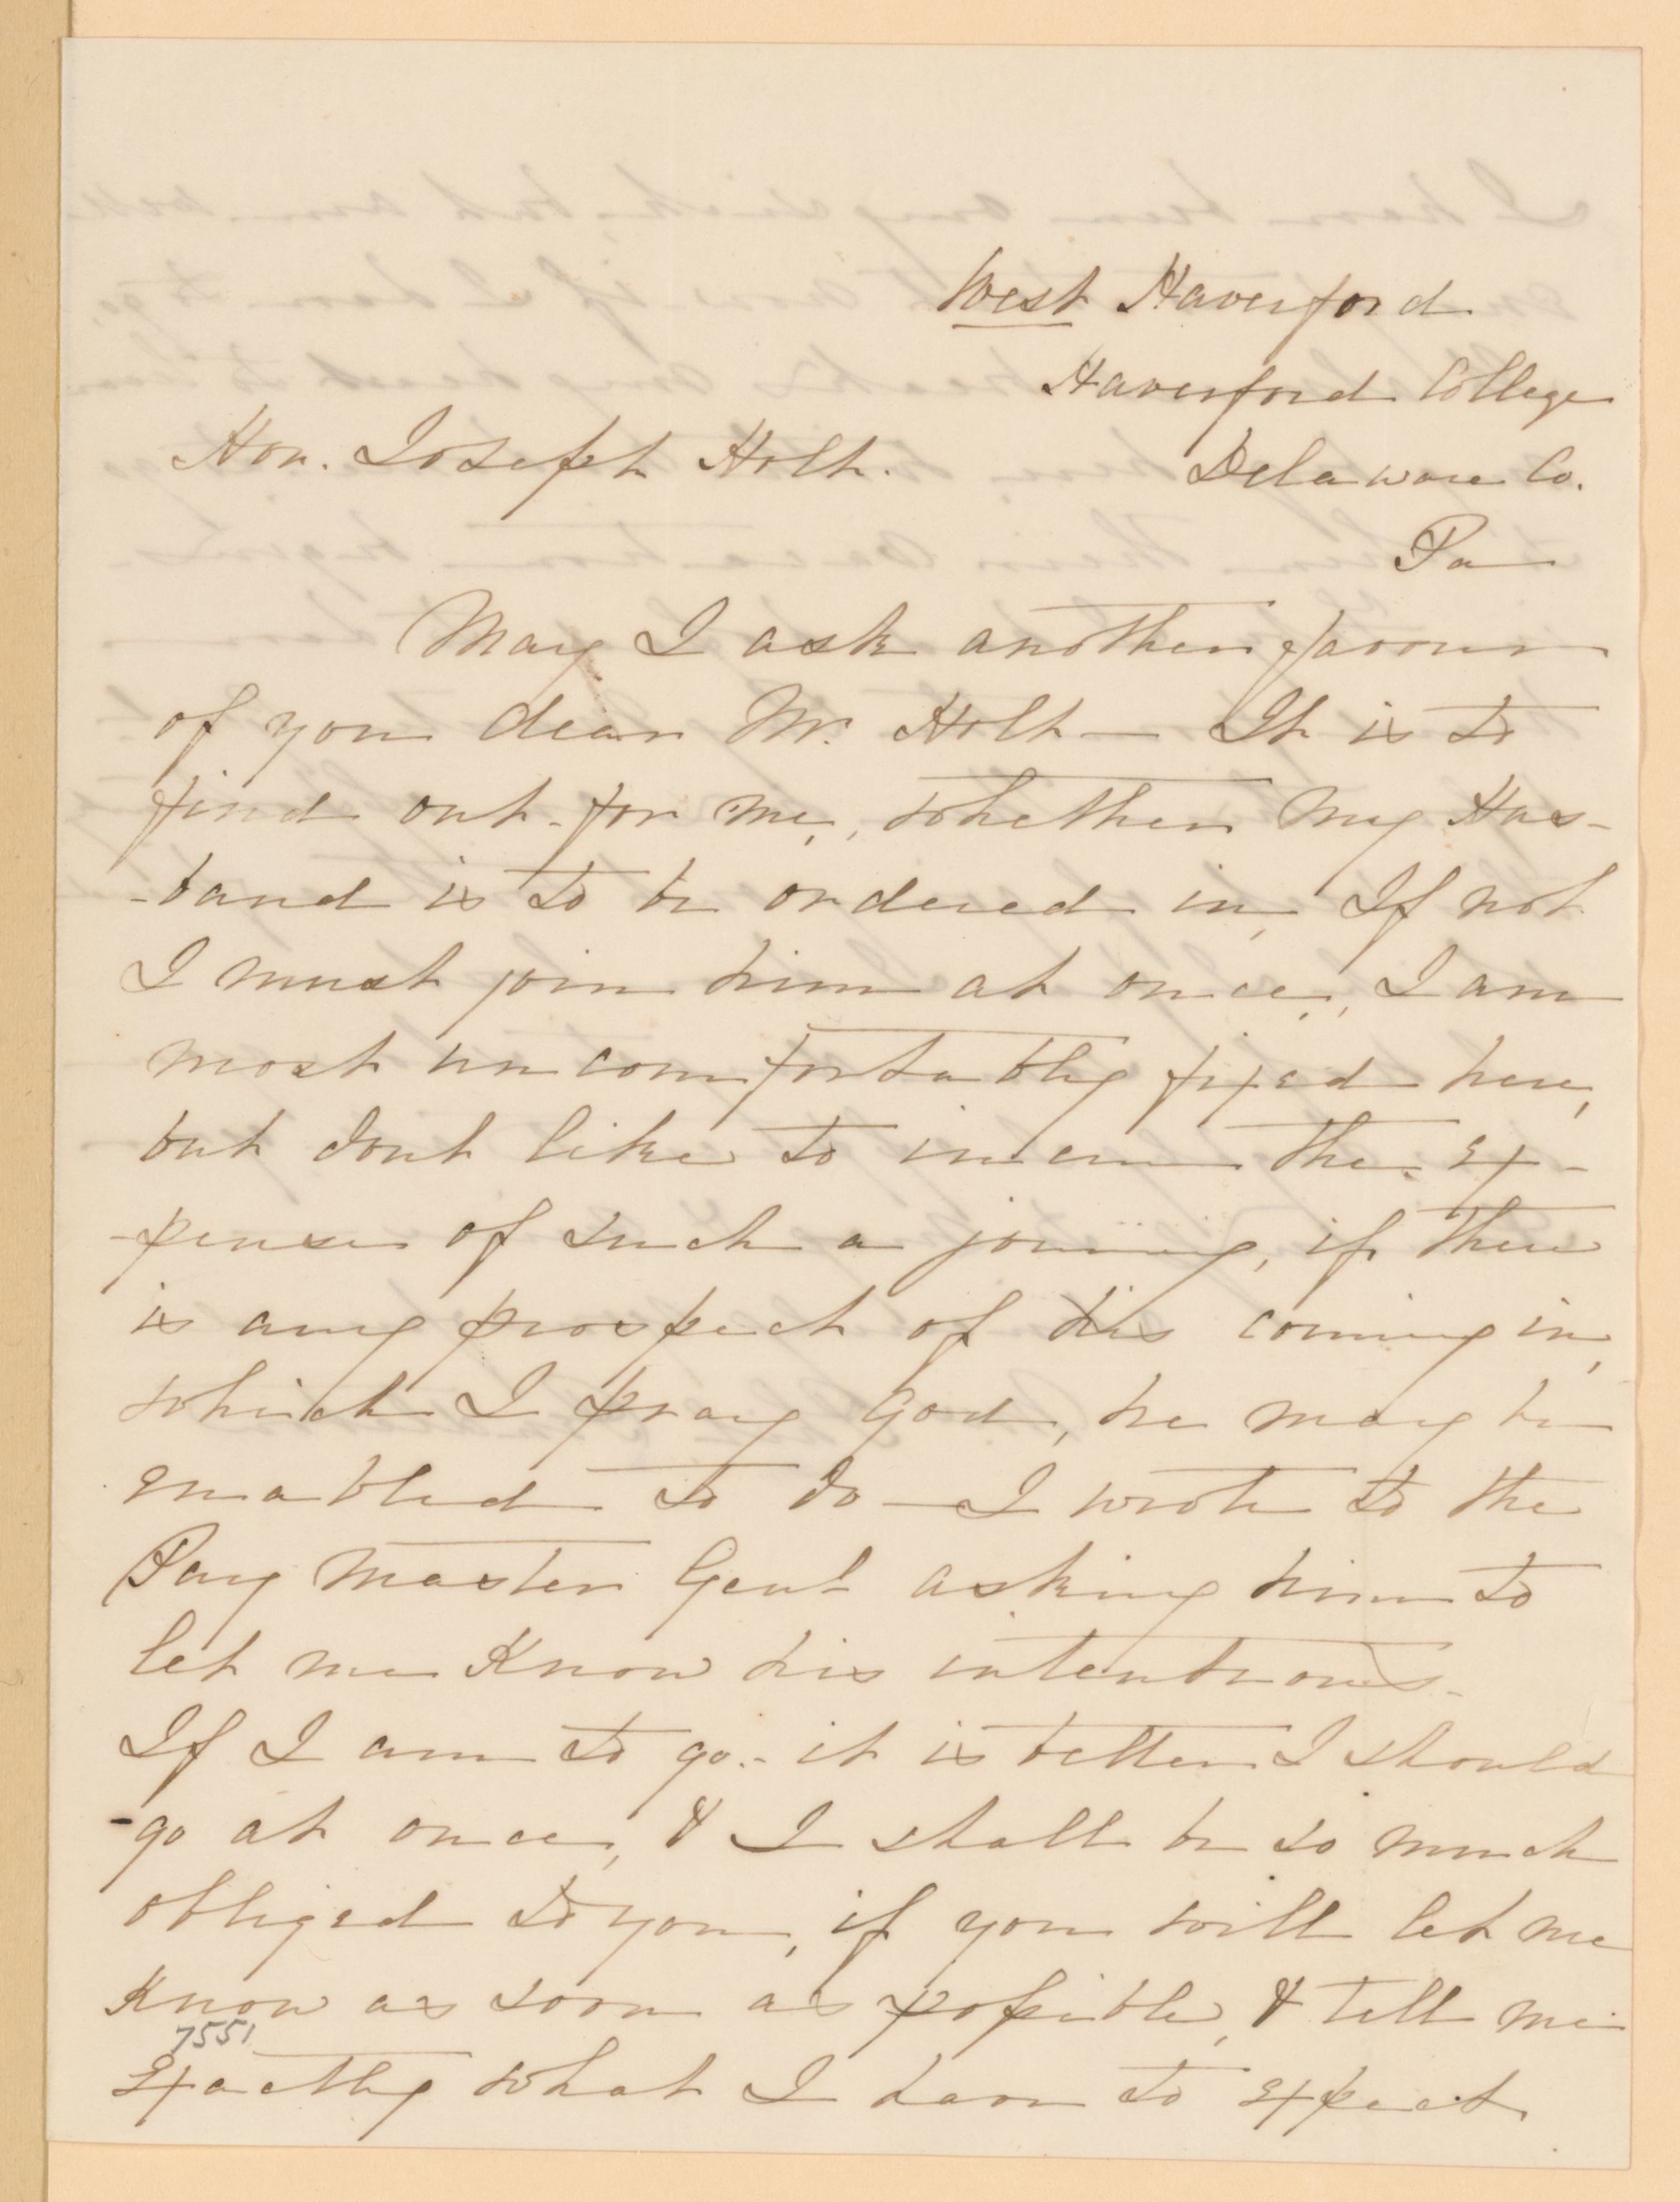 West Haverford
Haverford College
Hon. Joseph Holt.
Delaware Co.
Pa
May I ask another favour
of you dear Mr. Holt — It is to
find out for me, whether my Hus-
-band is to be ordered in, If not
I must join him at once, I am
most uncomfortably fixed here,
but dont like to incur the ex-
-penses of such a joining, if there
is any prospect of his coming in,
which I pray God, he may be
enabled to do — I wrote to the
Pay Master Genl asking him to
let me Know his intentions.
If I am to go - it is better I should
go at once, & I shall be so much
obliged to you, if you will let me
Know as soon as possible, & tell me
7551
exactly what I have to expect.